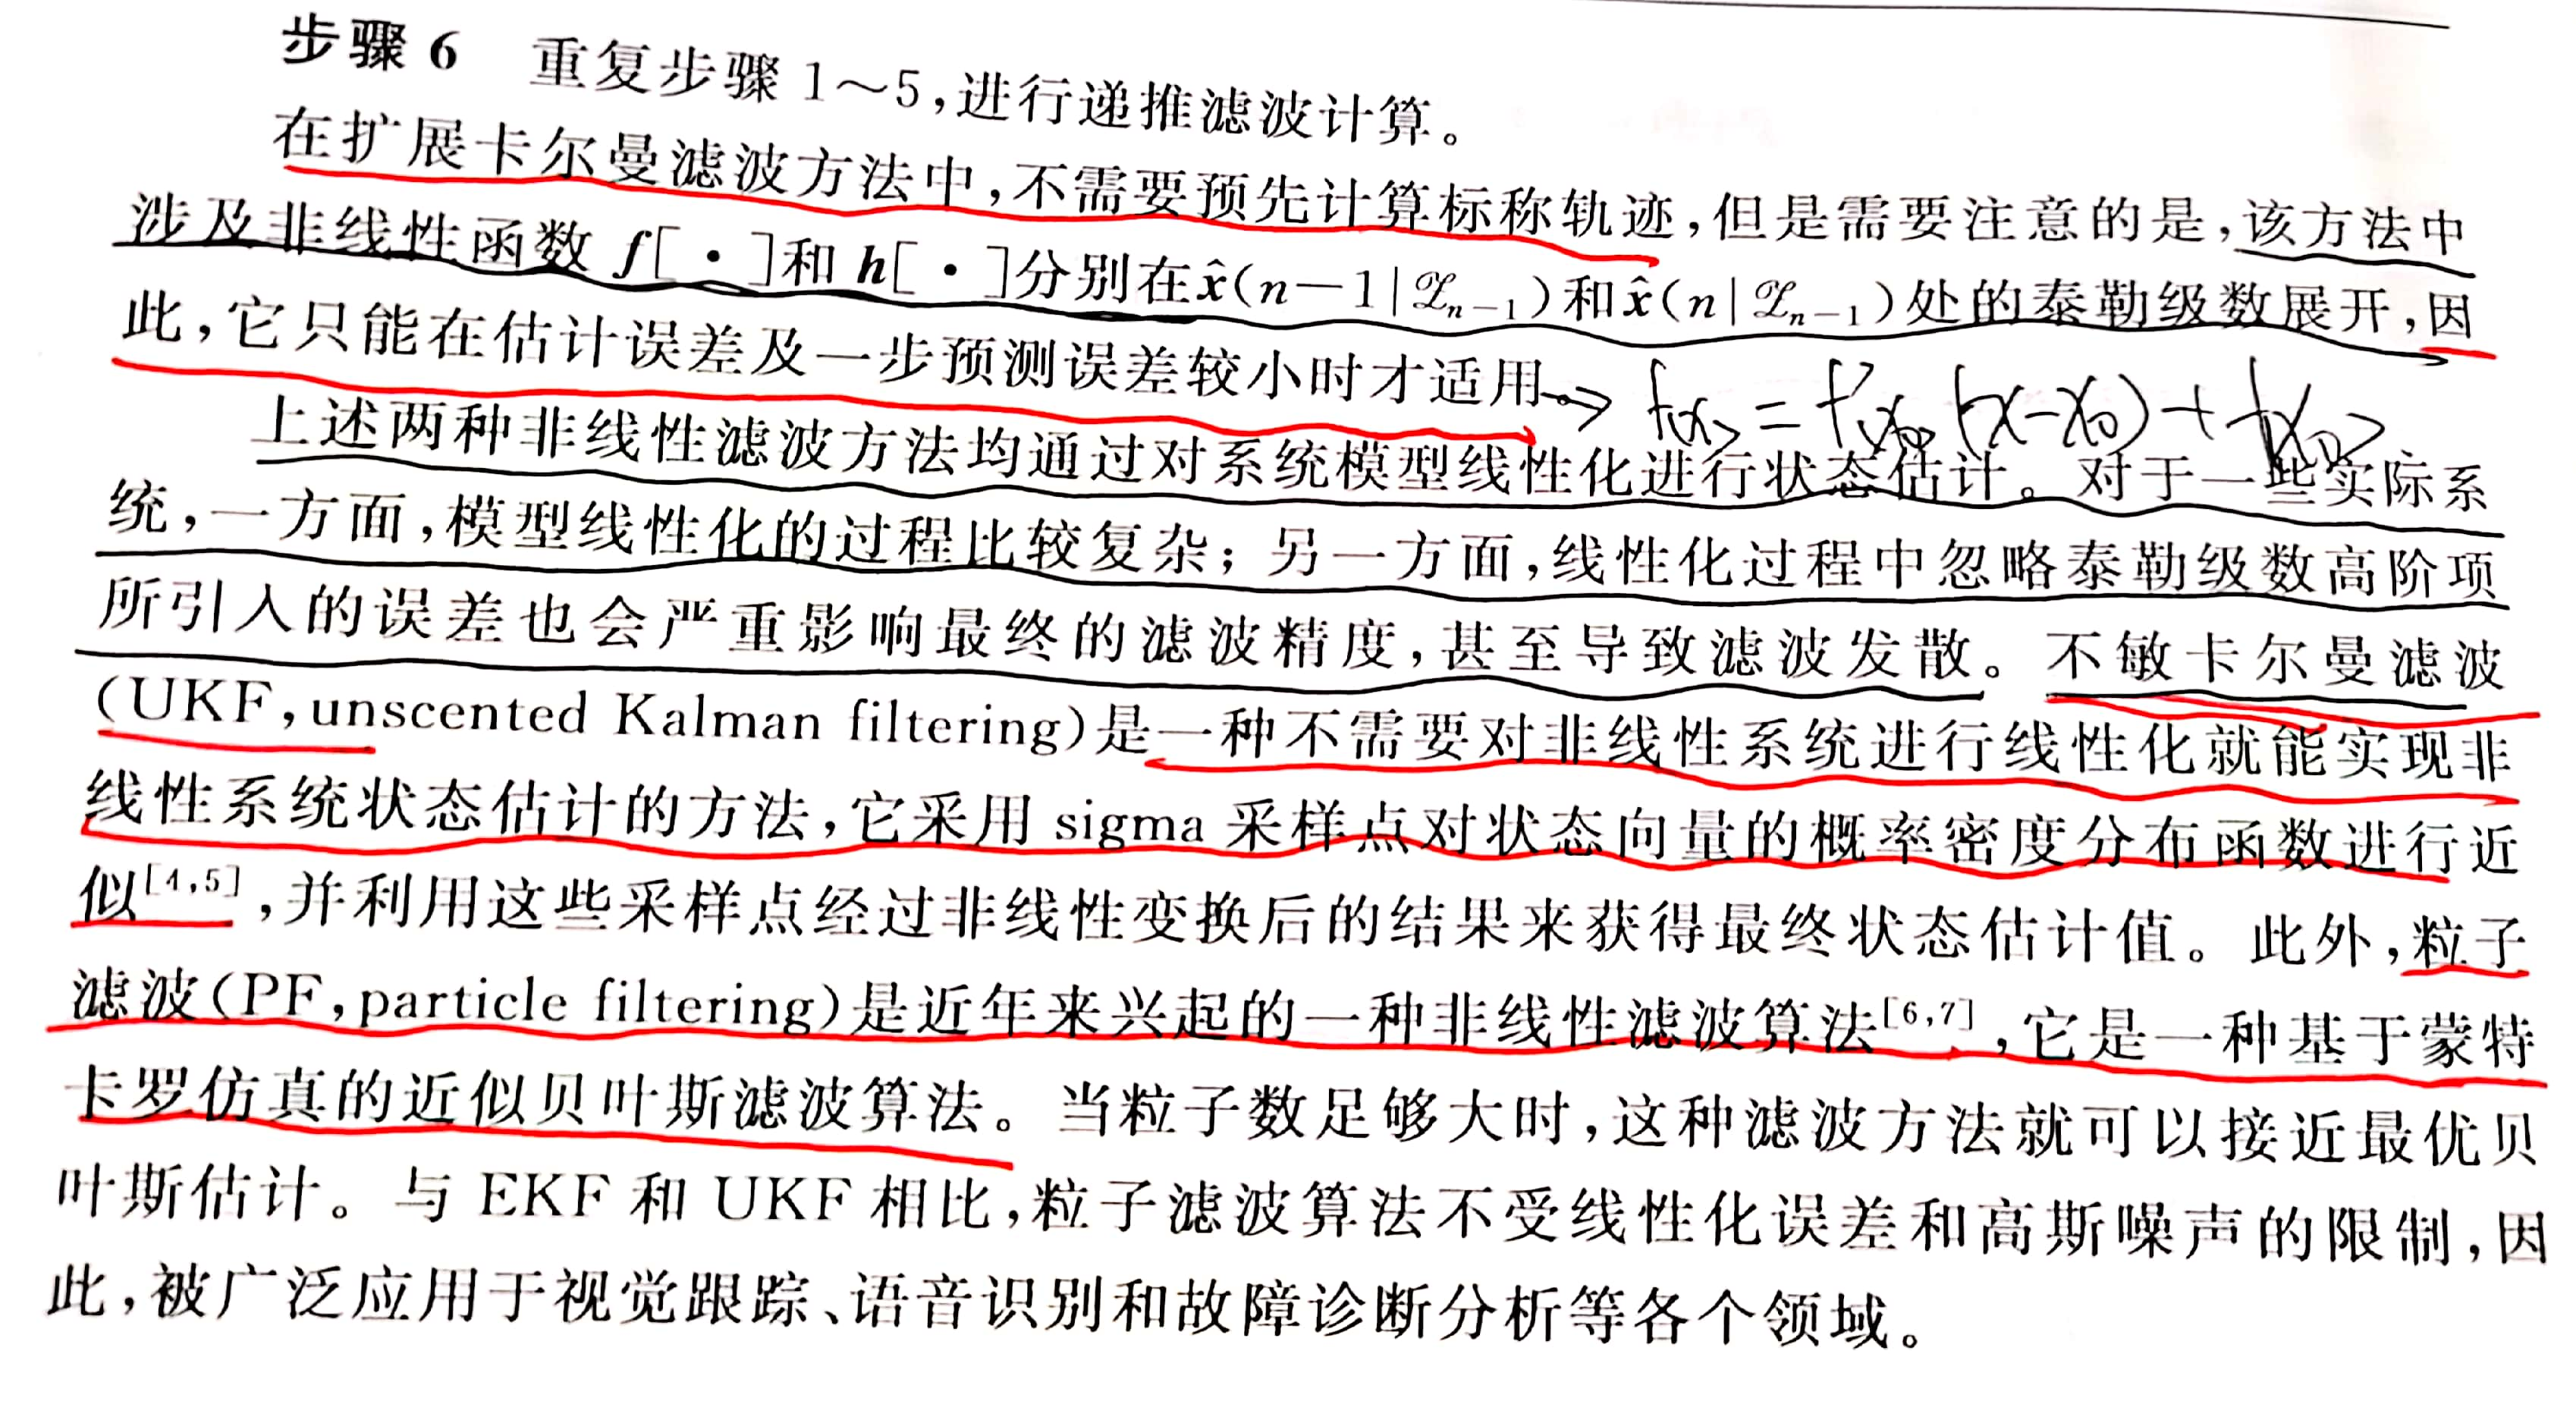 步骤 6 重复步骤 1～5,进行递推滤波计算。
在扩展卡尔曼滤波方法中,不需要预先计算标称轨迹,但是需要注意的是,该方法中
涉及非线性函数 f[ · ]和 h[ · ]分别在x̂(n−1|𝒵ₙ₋₁)和x̂(n|𝒵ₙ₋₁)处的泰勒级数展开,因
此,它只能在估计误差及一步预测误差较小时才适用。→ f(x) = f'(x₀)(x-x₀)+f(x₀)
上述两种非线性滤波方法均通过对系统模型线性化进行状态估计。对于一些实际系
统,一方面,模型线性化的过程比较复杂；另一方面,线性化过程中忽略泰勒级数高阶项
所引入的误差也会严重影响最终的滤波精度,甚至导致滤波发散。不敏卡尔曼滤波
(UKF,unscented Kalman filtering)是一种不需要对非线性系统进行线性化就能实现非
线性系统状态估计的方法,它采用 sigma 采样点对状态向量的概率密度分布函数进行近
似[4,5],并利用这些采样点经过非线性变换后的结果来获得最终状态估计值。此外,粒子
滤波(PF,particle filtering)是近年来兴起的一种非线性滤波算法[6,7],它是一种基于蒙特
卡罗仿真的近似贝叶斯滤波算法。当粒子数足够大时,这种滤波方法就可以接近最优贝
叶斯估计。与 EKF 和 UKF 相比,粒子滤波算法不受线性化误差和高斯噪声的限制,因
此,被广泛应用于视觉跟踪、语音识别和故障诊断分析等各个领域。